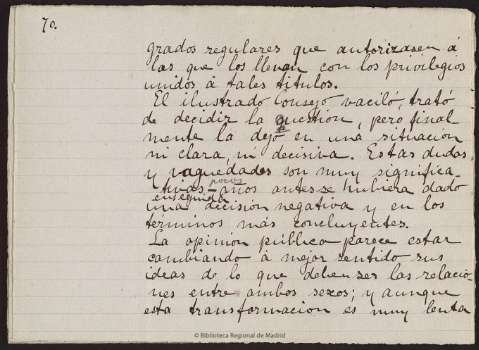 70.
grados regulares que autorizasen á
las que los llevan con los privilegios
unidos á tales titulos.
El ilustrado Consejo vaciló, trató
de decidir la question, pero final
mente la dejó en una situacion
ni clara, ni decisiva. Estas dudas
y vaguedades son muy significa
tivas pocos años antes se hubiera dado
enseguida
una decision negativa y en los
términos más concluyentes.
La opinion pública parece estar
cambiando á mejor sentido sus
ideas de lo que deben ser las relacio
nes entre ambos sexos; y aunque
esta transformacion es muy lenta
© Biblioteca Regional de Madrid